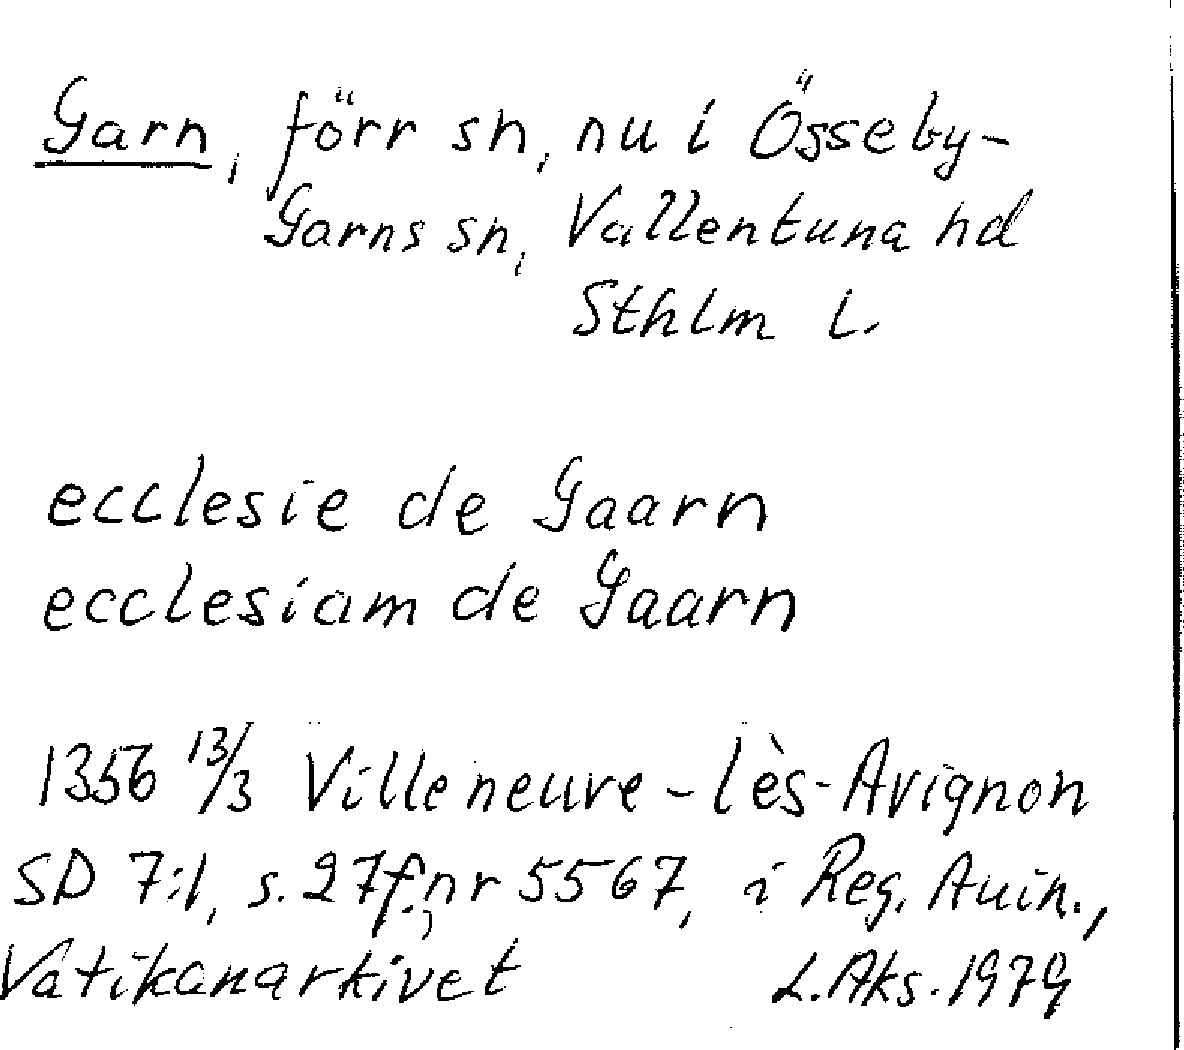 Garn, förr sn, nu i Össeby-
Garns sn, Vallentuna hd
Sthlm l.
ecclesie de Gaarn
ecclesiam de Gaarn
1356 13/3 Villeneuve-lès-Avignon
SD 7:1, s. 27f., nr 5567, i Reg. Auin.,
Vatikanarkivet L. Aks. 1979